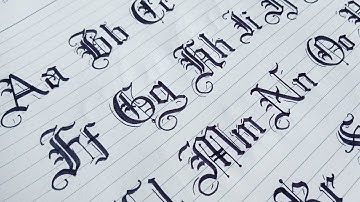 Aa Bb Cc
Ff Gg Hh Ii
Mm Nn Oo
Rr